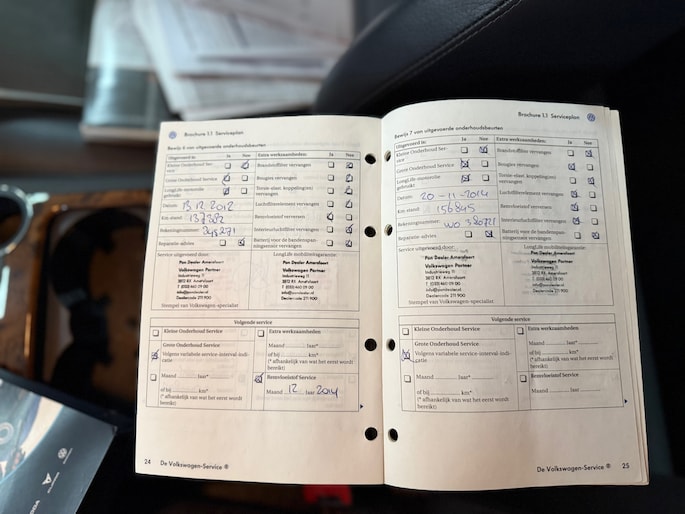 Brochure 1.1 Serviceplan
Bewijs 6 van uitgevoerde onderhoudsbeurten
Uitgevoerd in: Ja Nee Extra werkzaamheden: Ja Nee
Kleine Onderhoud Ser-
vice
Brandstoffilter vervangen
Grote Onderhoud Service
Bougies vervangen
LongLife-motorolie
gebruikt
vervangen
Datum: 13.12.2012
Luchtfilterelement vervangen
Km.-stand: 137382
Remvloeistof verversen
Rekeningnummer:
Interieurluchtfilter vervangen
Reparatie-advies
Batterij voor de bandenspan-
ningssensoren vervangen
Service uitgevoerd door:
LongLife mobiliteitsgarantie:
Pon Dealer Amersfoort
Volkswagen Partner
Industrieweg 11
info@pondealer.nl
Dealercode 211 900
Pon Dealer Amersfoort
Volkswagen Partner
Industrieweg 11
info@pondealer.nl
Dealercode 211 900
Stempel van Volkswagen-specialist
Volgende service
Kleine Onderhoud Service
Extra werkzaamheden
Grote Onderhoud Service
Volgens variabele service-interval-indi-
catie
Maand jaar*
of bij km*
(* afhankelijk van wat het eerst wordt
bereikt)
Maand jaar*
of bij km*
(* afhankelijk van wat het eerst wordt
bereikt)
Remvloeistof Service
Maand 12 jaar 2014
24 De Volkswagen-Service ®
Brochure 1.1 Serviceplan
Bewijs 7 van uitgevoerde onderhoudsbeurten
Uitgevoerd in: Ja Nee Extra werkzaamheden: Ja Nee
Kleine Onderhoud Ser-
vice
Brandstoffilter vervangen
Grote Onderhoud Service
Bougies vervangen
LongLife-motorolie
gebruikt
vervangen
Datum: 20-11-2014
Luchtfilterelement vervangen
Km.-stand: 156845
Remvloeistof verversen
Rekeningnummer: WO
Interieurluchtfilter vervangen
Reparatie-advies
Batterij voor de bandenspan-
ningssensoren vervangen
Service uitgevoerd door:
LongLife mobiliteitsgarantie:
Pon Dealer Amersfoort
Volkswagen Partner
Industrieweg 11
info@pondealer.nl
Dealercode 211 900
Pon Dealer Amersfoort
Volkswagen Partner
Industrieweg 11
info@pondealer.nl
Dealercode 211 900
Stempel van Volkswagen-specialist
Volgende service
Kleine Onderhoud Service
Extra werkzaamheden
Grote Onderhoud Service
Volgens variabele service-interval-indi-
catie
Maand jaar*
of bij km*
(* afhankelijk van wat het eerst wordt
bereikt)
Maand jaar*
of bij km*
(* afhankelijk van wat het eerst wordt
bereikt)
Remvloeistof Service
Maand jaar
De Volkswagen-Service ® 25